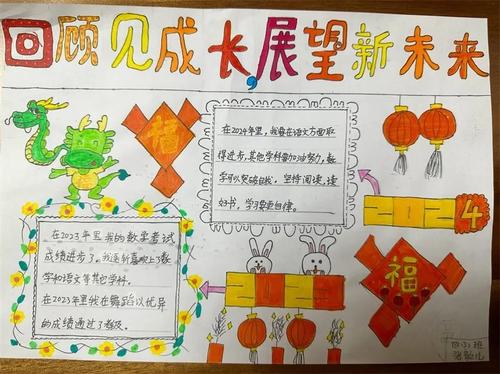 回顾见成长,展望新未来
福
在2024年里,我要在语文方面取
得进步,其他学科要加油努力,数
学可以突破自我,坚持阅读,读
好书,学习要更自律。
2024
在2023年里我的数学考试
成绩进步了。我逐渐喜欢上了数
学和语文等其他学科。
在2023年里我在舞蹈以优异
的成绩通过了考级。
福